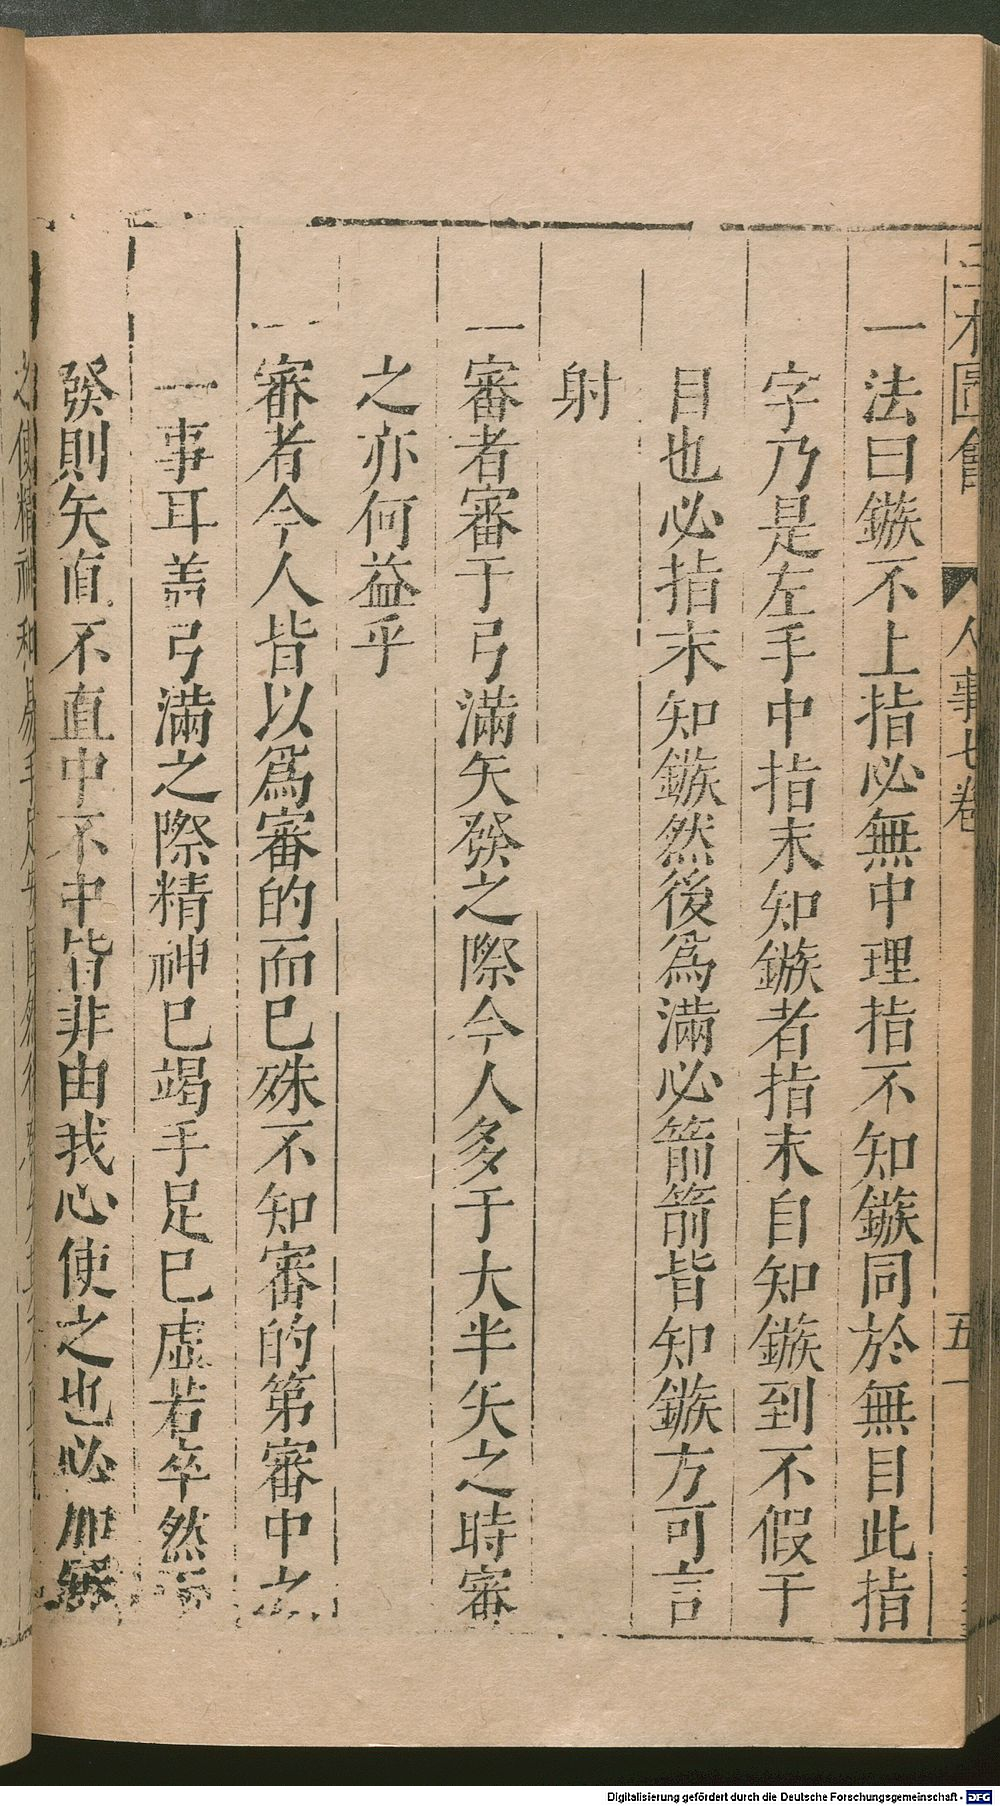 三才圖會 人事七卷 五
一法曰鏃不上指必無中理指不知鏃同於無目此指
字乃是左手中指末知鏃者指末自知鏃到不假于
目也必指末知鏃然後為滿必箭箭皆知鏃方可言
射
一審者審于弓滿矢發之際今人多于大半矢之時審
之亦何益乎
一審者今人皆以爲審的而巳殊不知審的第審中之
一事耳善弓滿之際精神巳竭手足巳虛若卒然而
發則矢直不直中不中皆非由我心使之也必加審
之使精神和易手足安固然後發矢
Digitalisierung gefördert durch die Deutsche Forschungsgemeinschaft - DFG